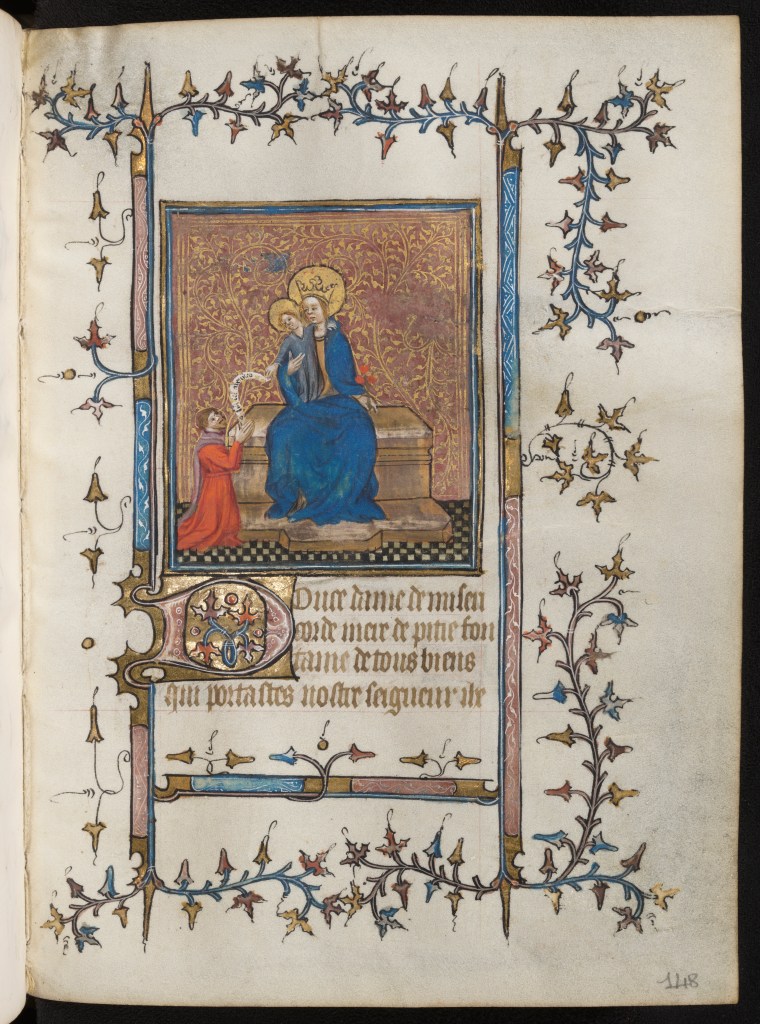 Douce dame de miseri
corde mere de pitie fon
taine de tous biens
qui portastes nostre seigneur ihe
148